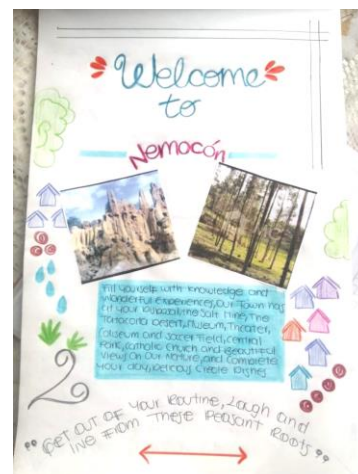 Welcome
to
Nemocón
Fill yourself with knowledge and
wonderful experiences, Our Town has
at your the Salt Mine, The
Tatacoita Desert, Museum, Theater,
Coliseum and Soccer Field, central
Park, Catholic Church and Beautiful
Views on our Nature, and Complete
your day, Delicious Creole Dishes
"GET OUT OF YOUR Routine, Laugh and
live From These Peasant Roots"